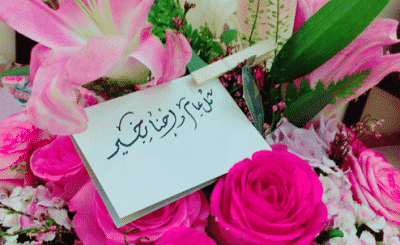 كل عام واحنا بخير